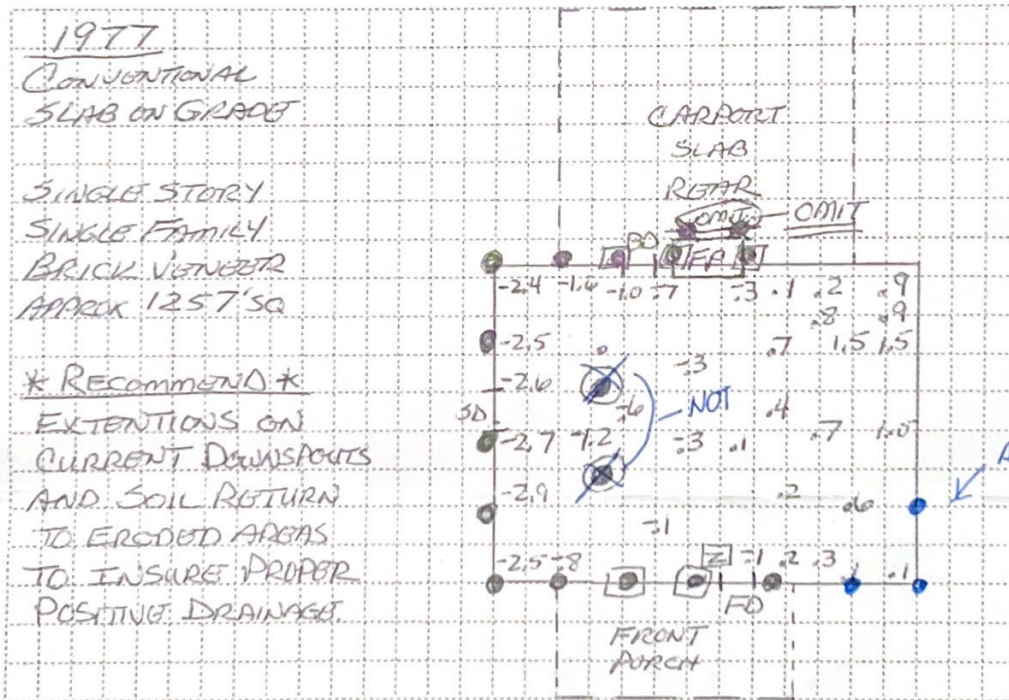 1977
CONVENTIONAL
SLAB ON GRADE
SINGLE STORY
SINGLE FAMILY
BRICK VENEER
APPROX 1257'SQ
* RECOMMEND *
EXTENTIONS ON
CURRENT DOWNSPOUTS
AND SOIL RETURN
TO ERODED AREAS
TO INSURE PROPER
POSITIVE DRAINAGE.
CARPORT
SLAB
REAR
OMIT OMIT
BD FP
-2.4 -1.6 -1.0 -.7 -.3 .1 .2 .9
.8 .9
-2.5 .7 1.5 1.5
-.3
-2.6
-.6 NOT .4
SD
-2.7 -1.2 -.3 .1 .7 1.0
-2.9 .2 .6
-.1
-2.5 -.8 Z -.1 .2 .3 .1
FD
FRONT
PORCH